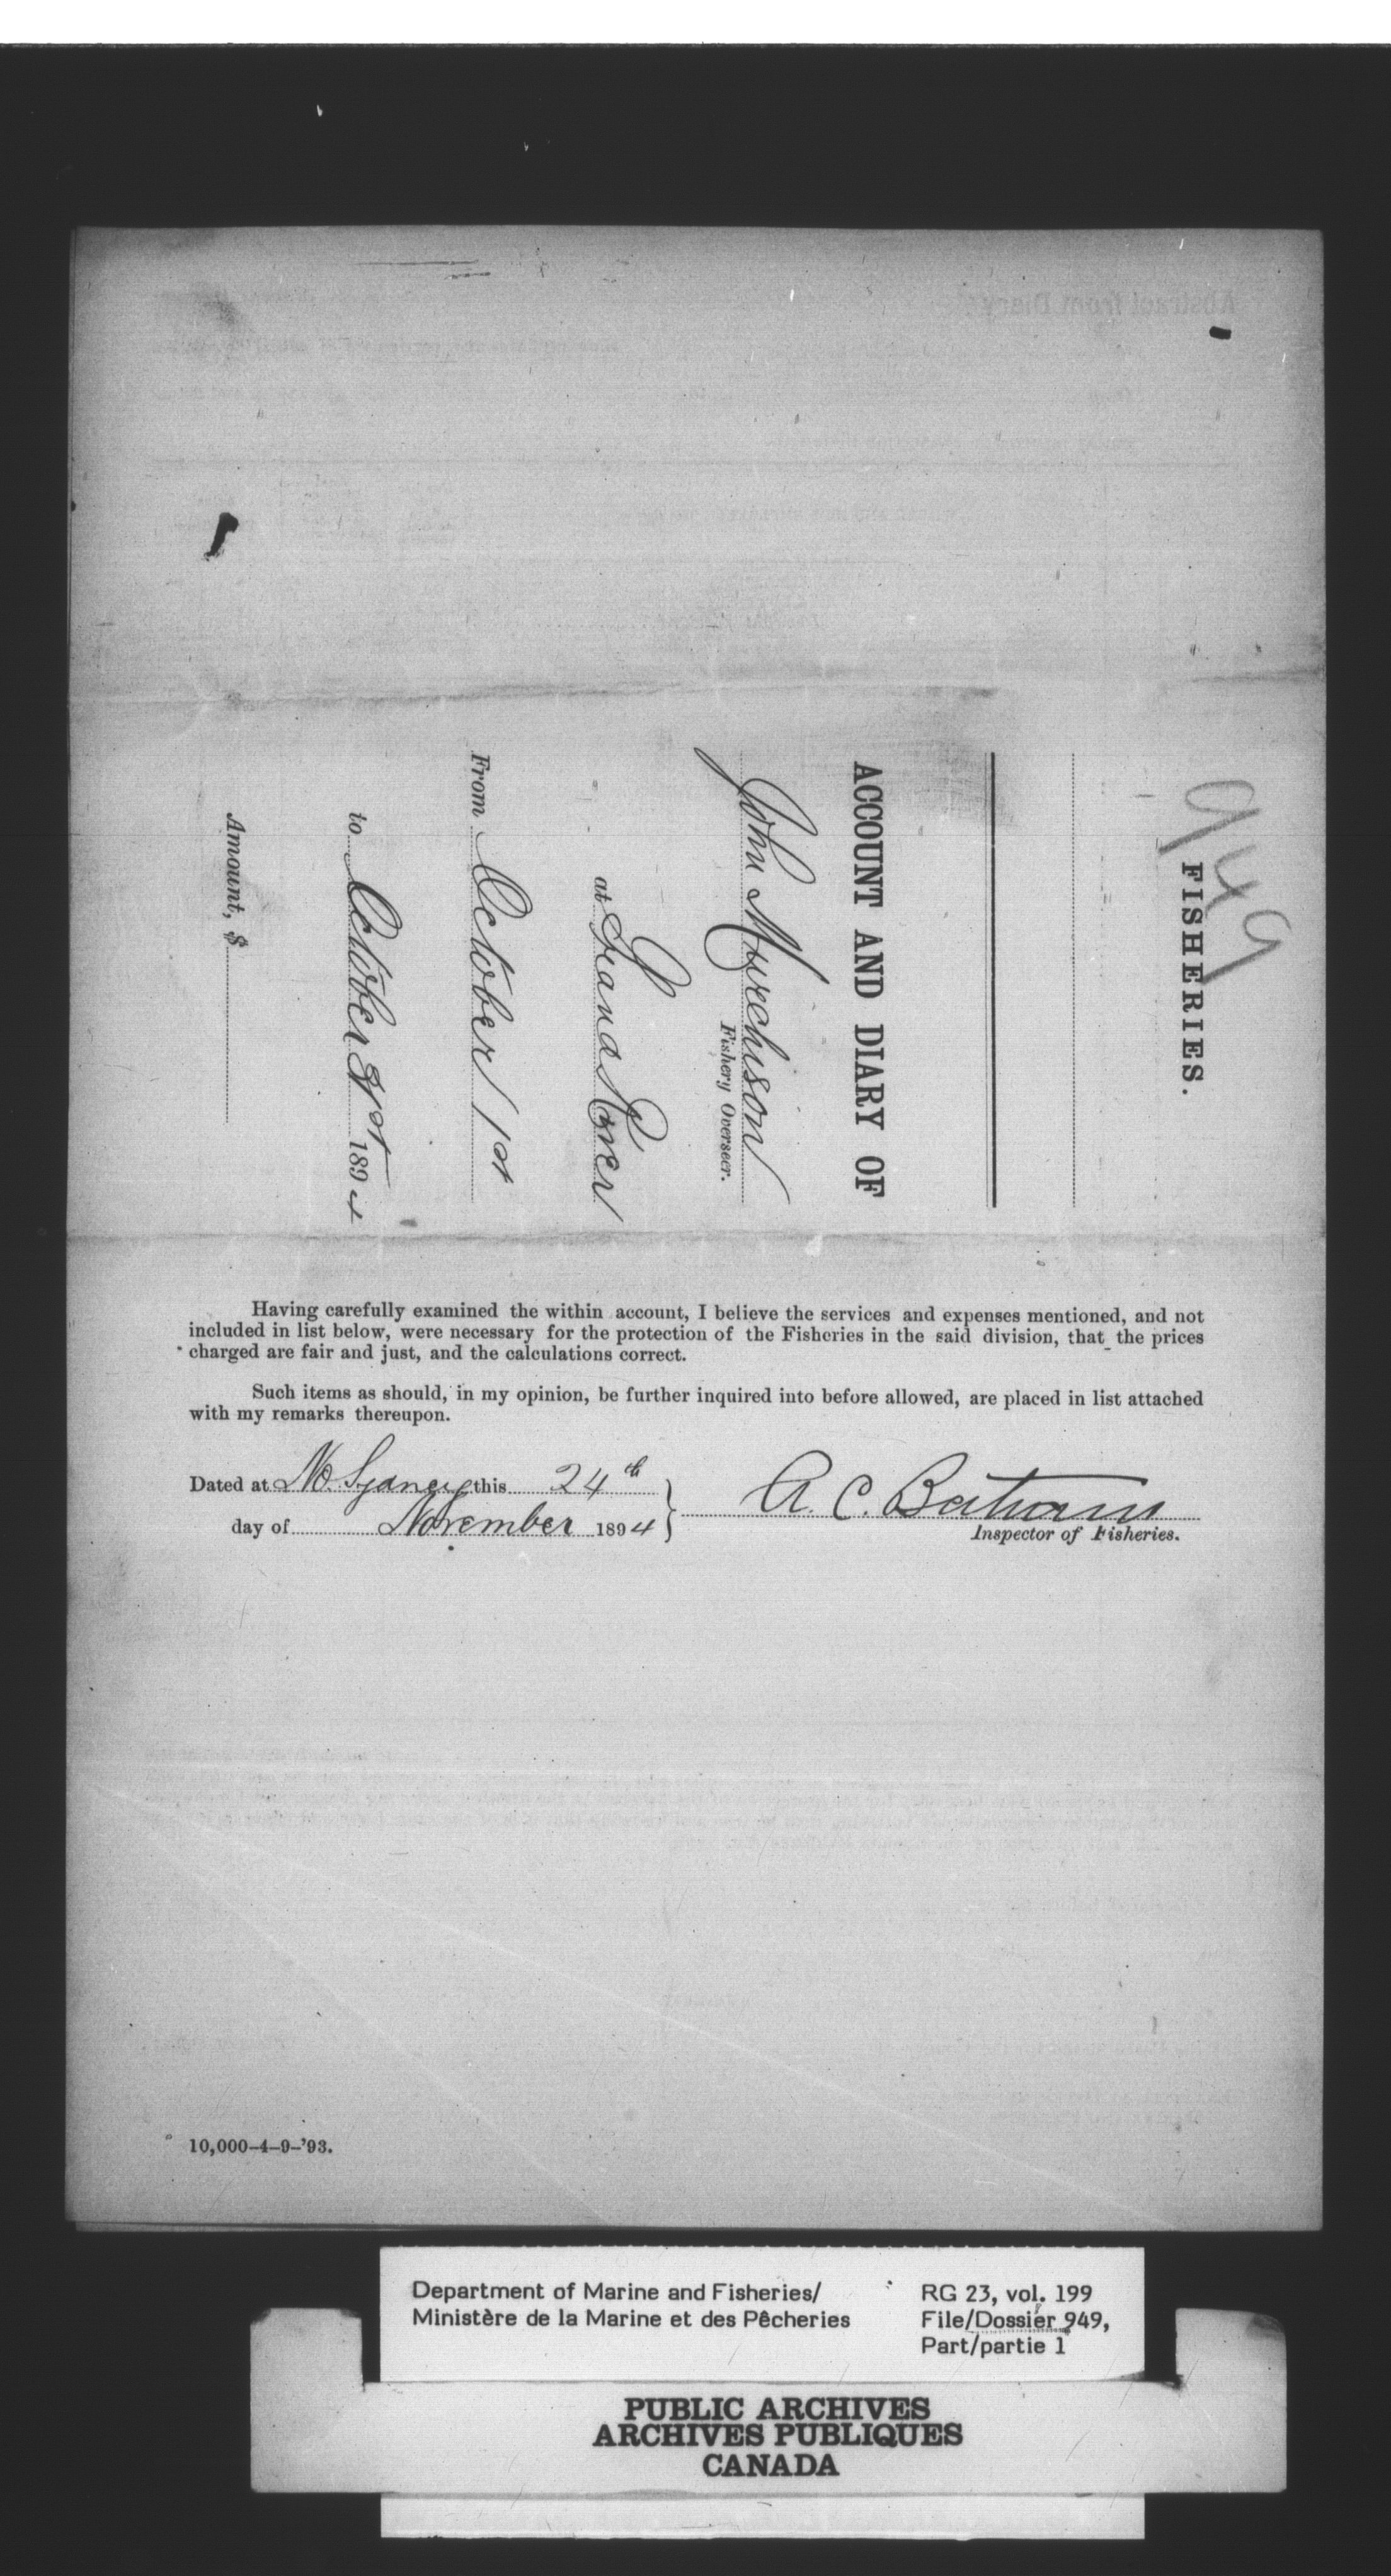 949
FISHERIES.
ACCOUNT AND DIARY OF
John Murchison
Fishery Overseer.
at Grand River
From October 1st
to October 31st 1894
Amount, $
Having carefully examined the within account, I believe the services and expenses mentioned, and not
included in list below, were necessary for the protection of the Fisheries in the said division, that the prices
charged are fair and just, and the calculations correct.
Such items as should, in my opinion, be further inquired into before allowed, are placed in list attached
with my remarks thereupon.
Dated at No. Sydney this 24th
day of November 1894
A. C. Bertram
Inspector of Fisheries.
10,000–4–9–'93.
Department of Marine and Fisheries/
Ministère de la Marine et des Pêcheries
RG 23, vol. 199
File/Dossier 949,
Part/partie 1
PUBLIC ARCHIVES
ARCHIVES PUBLIQUES
CANADA